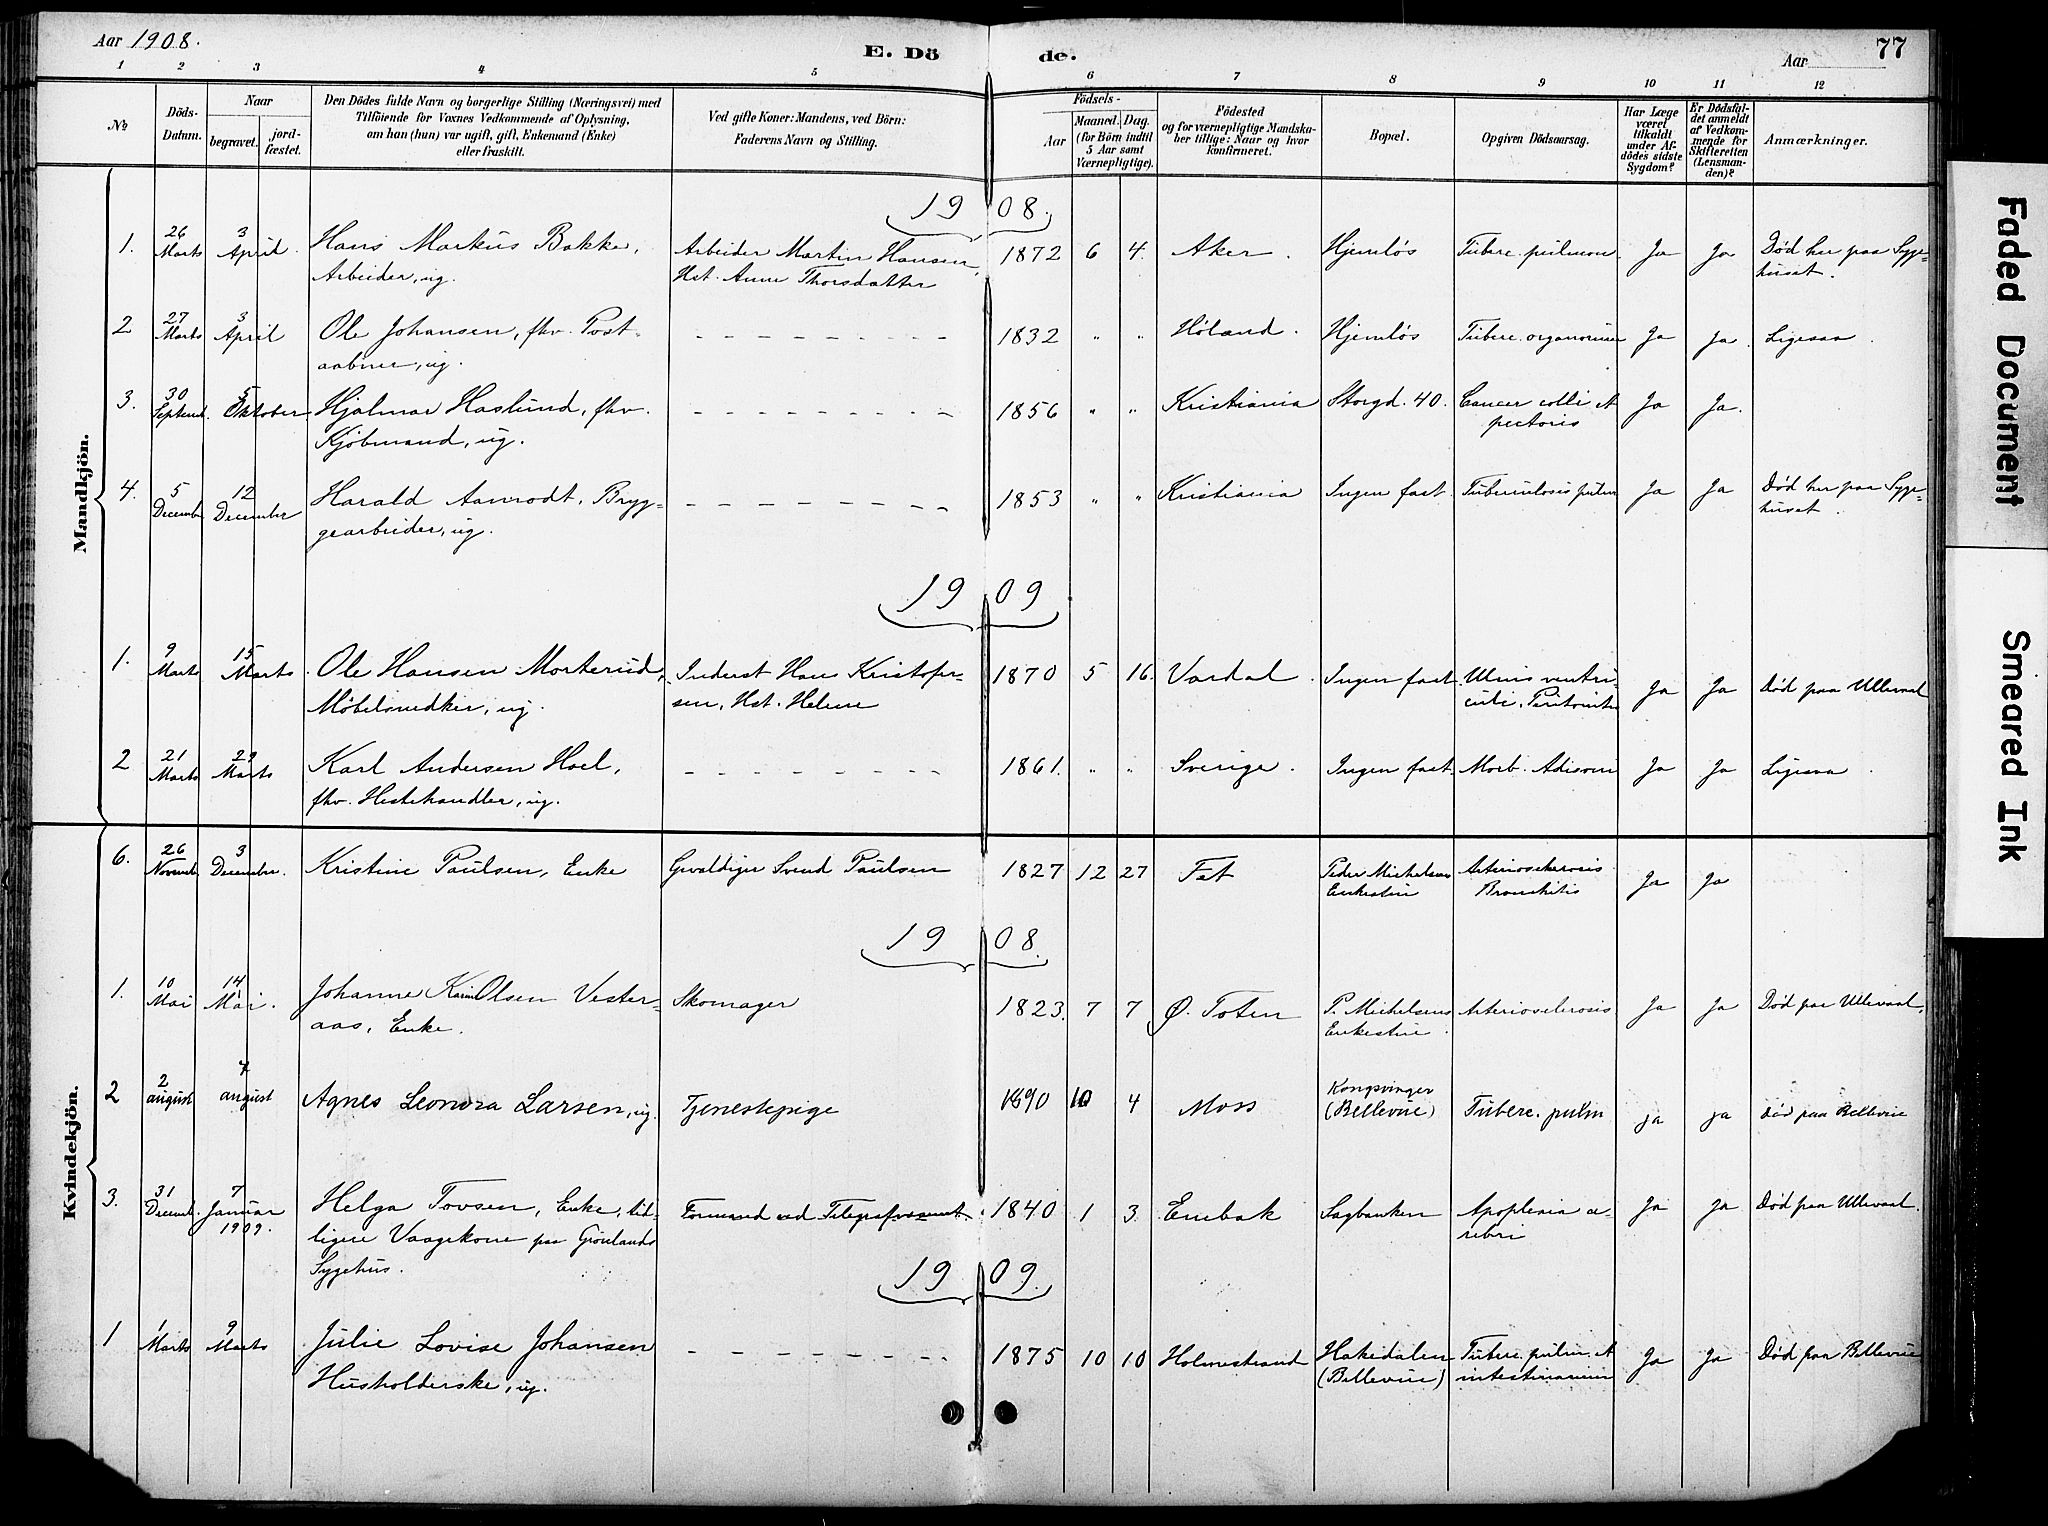 Aar 1908.
E. Dö de.
Aar
77
1 2 3 4 5 6 7 8 9 10 11 12
№
Döds-Datum.
Naar
begravet.
jord-fæstet.
Den Dödes fulde Navn og borgerlige Stilling (Næringsvei) med
Tilföiende for Voxnes Vedkommende af Oplysning,
om han (hun) var ugift, gift, Enkemand (Enke)
eller fraskilt.
Ved gifte Koner: Mandens, ved Börn:
Faderens Navn og Stilling.
Födsels-
Aar
Maaned. Dag.
(for Börn indtil
5 Aar samt
Værnepligtige).
Födested
og for værnepligtige Mandska-
ber tillige: Naar og hvor
konfirmeret.
Bopæl.
Opgiven Dödsaarsag.
Har Læge
været
tilkaldt
under Af-
dödes sidste
Sygdom?
Er Dödsfal-
det anmeldt
af Vedkom-
mende for
Skifteretten
(Lensman-
den)?
Anmærkninger.
Mandkjön.
1908.
1. 26 Marts 3 April. Hans Markus Bakke, Arbeider Martin Hansen, 1872 6 4. Aker. Hjemløs Tuberc. pulmon. Ja Ja Død her paa Syge-
Arbeider, ug. Hst. Anne Thorsdatter huset.
2 27 Marts 3 April Ole Johansen, fhv. Post- 1832 " " Høland. Hjemløs Tuberc. organorum Ja Ja. Ligesaa.
aabner, ug.
3. 30 Septemb. 5 Oktober Hjalmar Haslund, fhv. 1856 " " Kristiania Storgd. 40. Cancer colli et Ja Ja.
Kjöbmand, ug. pectoris
4. 5 December 12 December Harald Aamodt, Bryg- 1853 " " Kristiania Ingen fast. Tuberculosis pulm Ja Ja Død her paa Syge-
gearbeider, ug. huset.
1909
1. 9 Marts 15 Marts. Ole Hansen Morterud, Inderst Hans Kristofer- 1870 5 16. Vardal. Ingen fast. Ulcus ventri- Ja Ja Død paa Ullevaal
Møbelsnedker, ug. sen, Hst. Helene culi. Peritonitis
2 21 Marts 29 Marts Karl Andersen Hoel, 1861. " " Sverige. Ingen fast. Morb. Adisoni Ja Ja Ligesaa.
fhv. Hestehandler, ug.
Kvindekjön.
6. 26 Novemb. 3 December. Kristine Paulsen, Enke Gevaldiger Svend Paulsen 1827 12 27 Fet Peder Michelsens Arteriosclerosis Ja Ja
Enkestue Bronchitis
1908.
1. 10 Mai 14 Mai. Johanne Karin Olsen Vester- Skomager 1823. 7 7 Ø. Toten P. Michelsens Arteriosclerosis Ja Ja Død paa Ullevaal.
aas, Enke. Enkestue.
2 2 august 4 august Agnes Leonora Larsen, ug. Tjenestepige 1890 10 4 Moss Kongsvinger Tuberc. pulm ja ja død paa Bellevue
(Bellevue)
3. 31 Decemb. 7 Januar 1909. Helga Tovsen, Enke, tid- Formand ved Telegrafvæsenet. 1840 1 3. Enebak Sagbanken Apoplexia ce- Ja Ja Død paa Ullevaal.
ligere Vaagekone paa Grönlands rebri
Sygehus.
1909.
1 1 Marts 9 Marts Julie Lovise Johansen 1875 10 10 Holmestrand Hakedalen Tuberc. pulm. et Ja Ja Død paa Bellevue
Husholderske, ug. (Bellevue) intestinarum
Faded Document
Smeared Ink